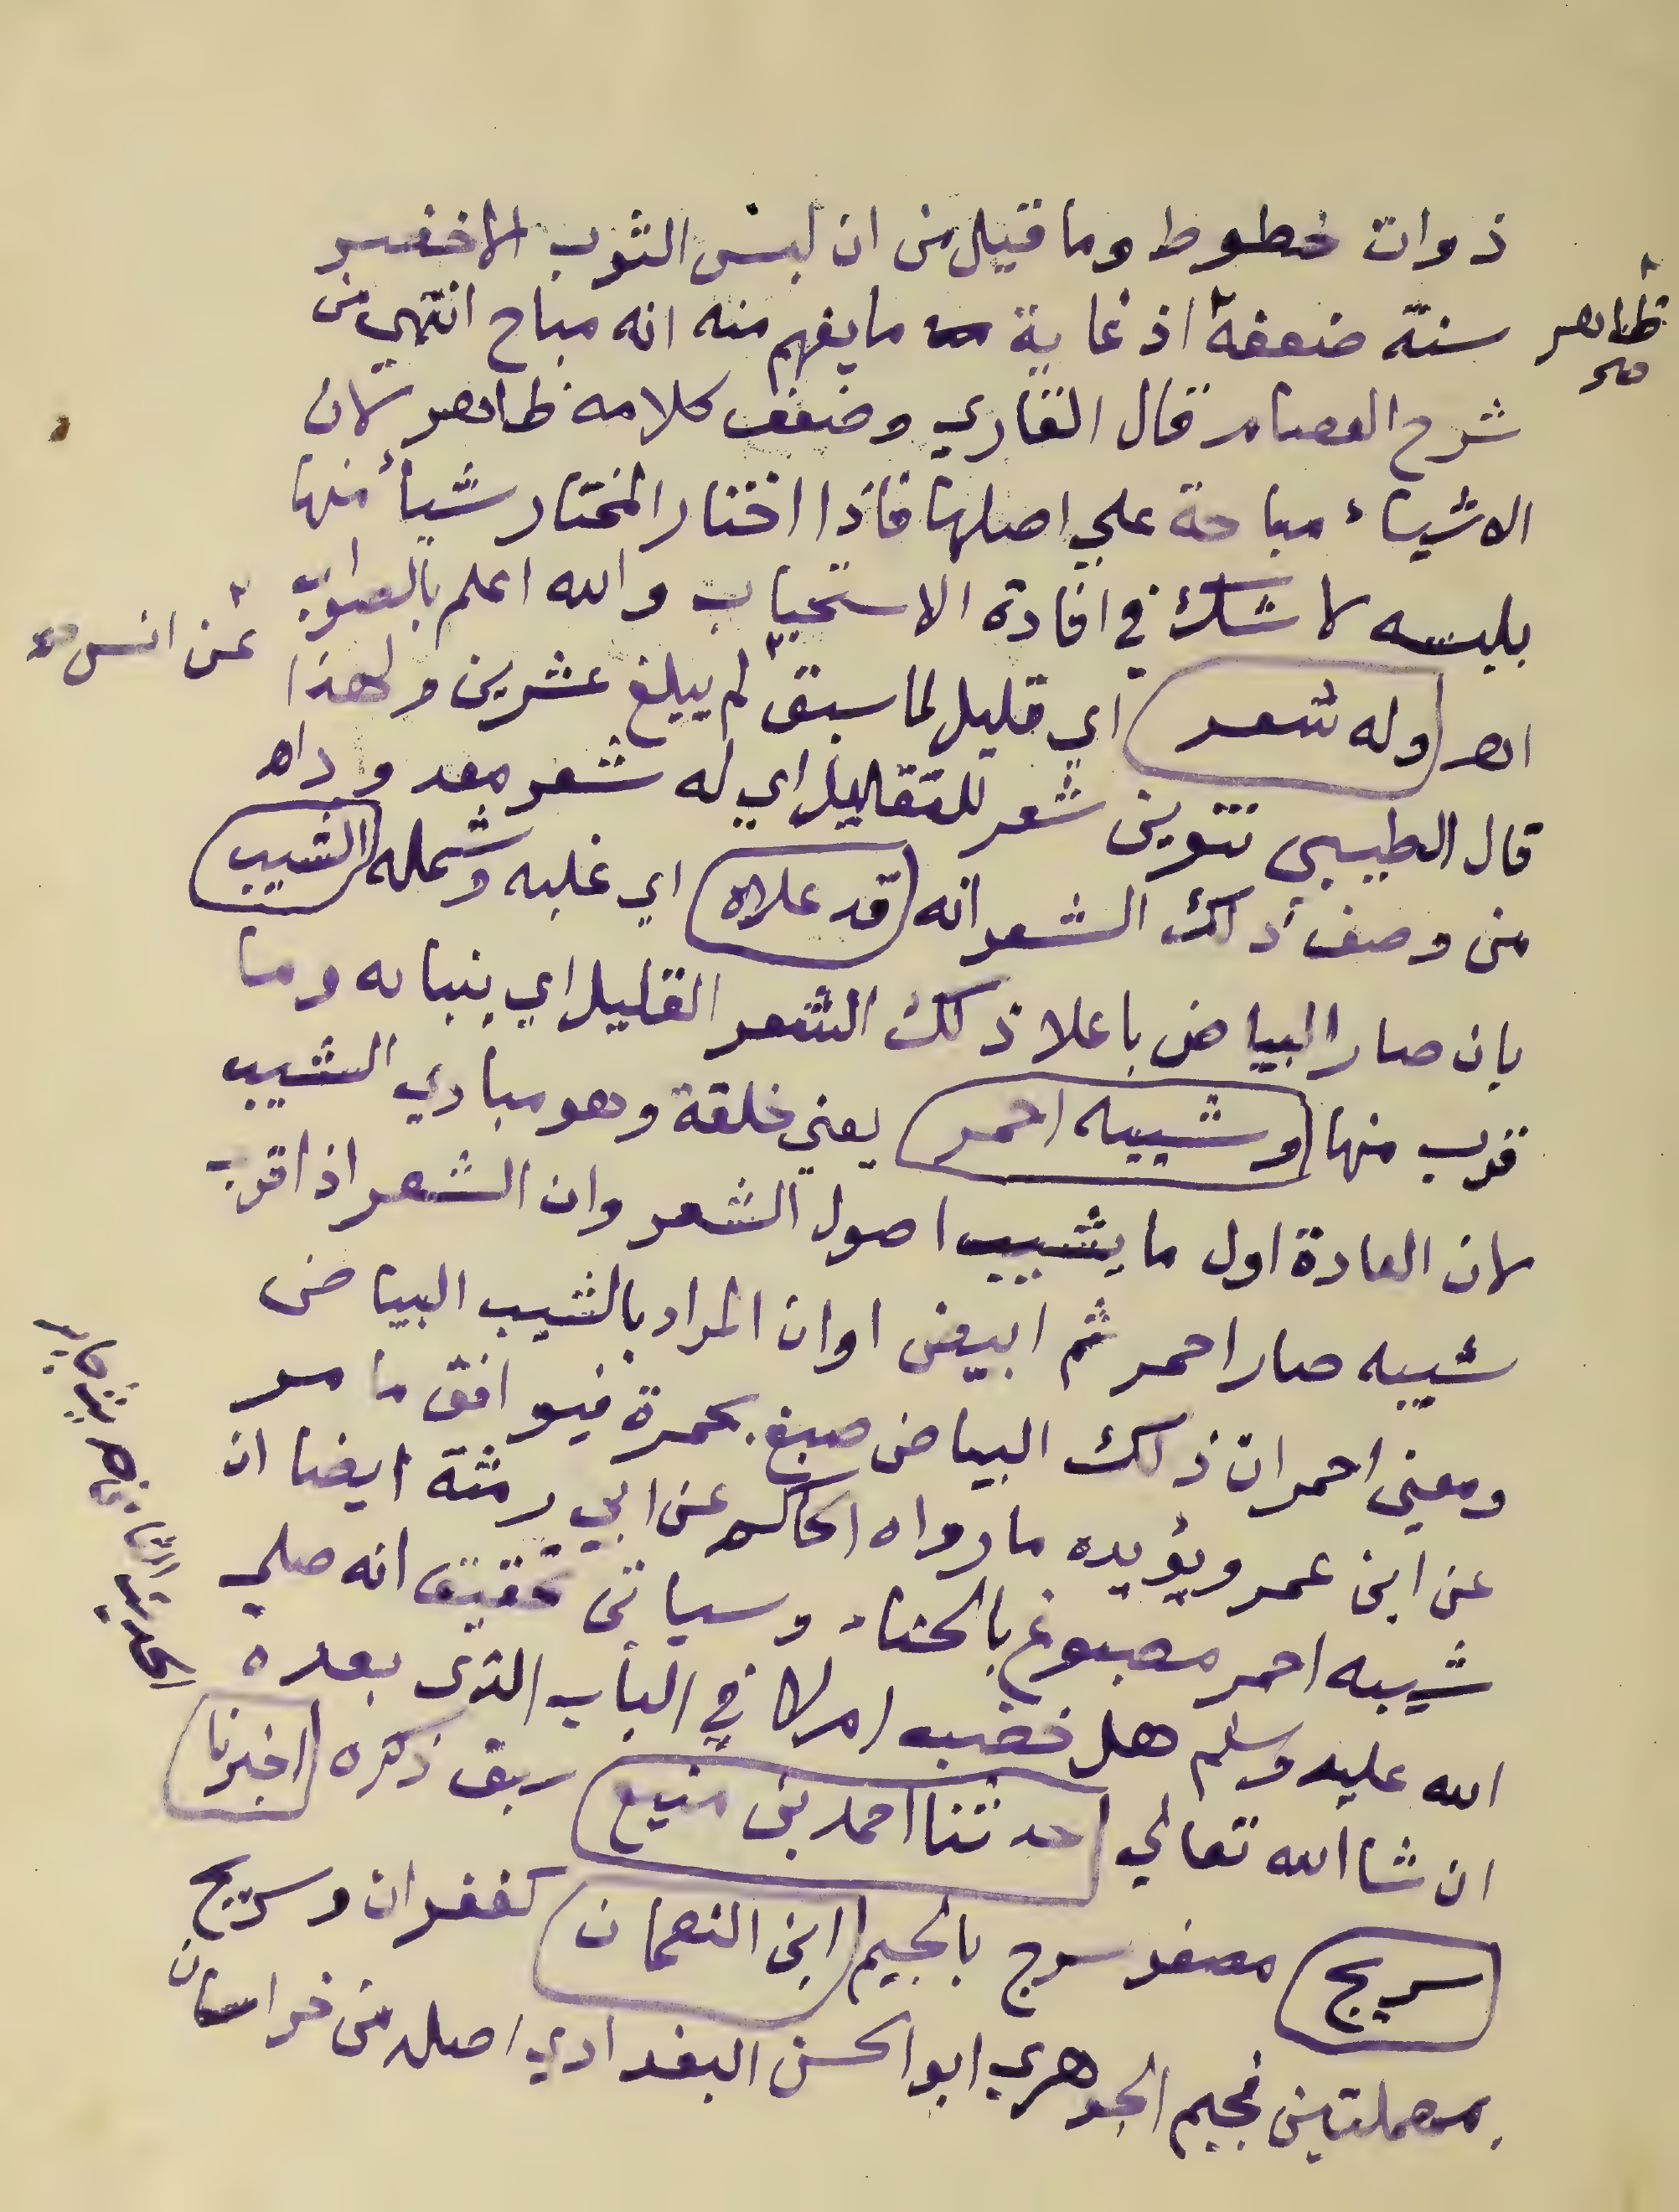 ذوات خطوط وما قيل من ان لبس الثوب الاخضر
سنة ضعفه اذ غاية ما يفهم منه انه مباح انتهي من
ظاهر
شرح العصام قال القاري وضعف كلامه ظاهر لان
الاشياء مباحة علي اصلها فاذا اختار المختار شيأ منها
بلبسه لا شك في افادة الاستحباب والله اعلم بالصواب
عن انس
اهـ وله شعر اي قليل لما سبق لم يبلغ عشرين ولهذا
قال الطيبي تنوين شعر للتقليل اي له شعر معدوداه
من وصف ذلك الشعر انه قد علاه اي غلبه وشمله الشيب
بان صار البياض باعلا ذلك الشعر القليل اي بنباته وما
قرب منها وشيبه احمر يعني خلقة وهو مبادي الشيب
لان العادة اول ما يشيب اصول الشعر وان الشعر اذا قرب
شيبه صار احمر ثم ابيض او ان المراد بالشيب البياض
ومعني احمر ان ذلك البياض صبغ بحمرة فيوافق ما مر
عن ابن عمر ويؤيده ما رواه الحاكم عن ابي رمثة ايضا ان
شيبه احمر مصبوغ بالحناء وسياتي تحقيق انه صلي
الله عليه وسلم هل خضب ام لا في الباب الذي بعده
ان شا الله تعالي حدثنا احمد بن منيع سبق ذكره اخبرنا
سريج مصغر سرج بالجيم ابن النعمان كغفران وسريج
بمهملتين فجيم الجوهري ابو الحسن البغدادي اصله من خراسان
الحديث الثامن